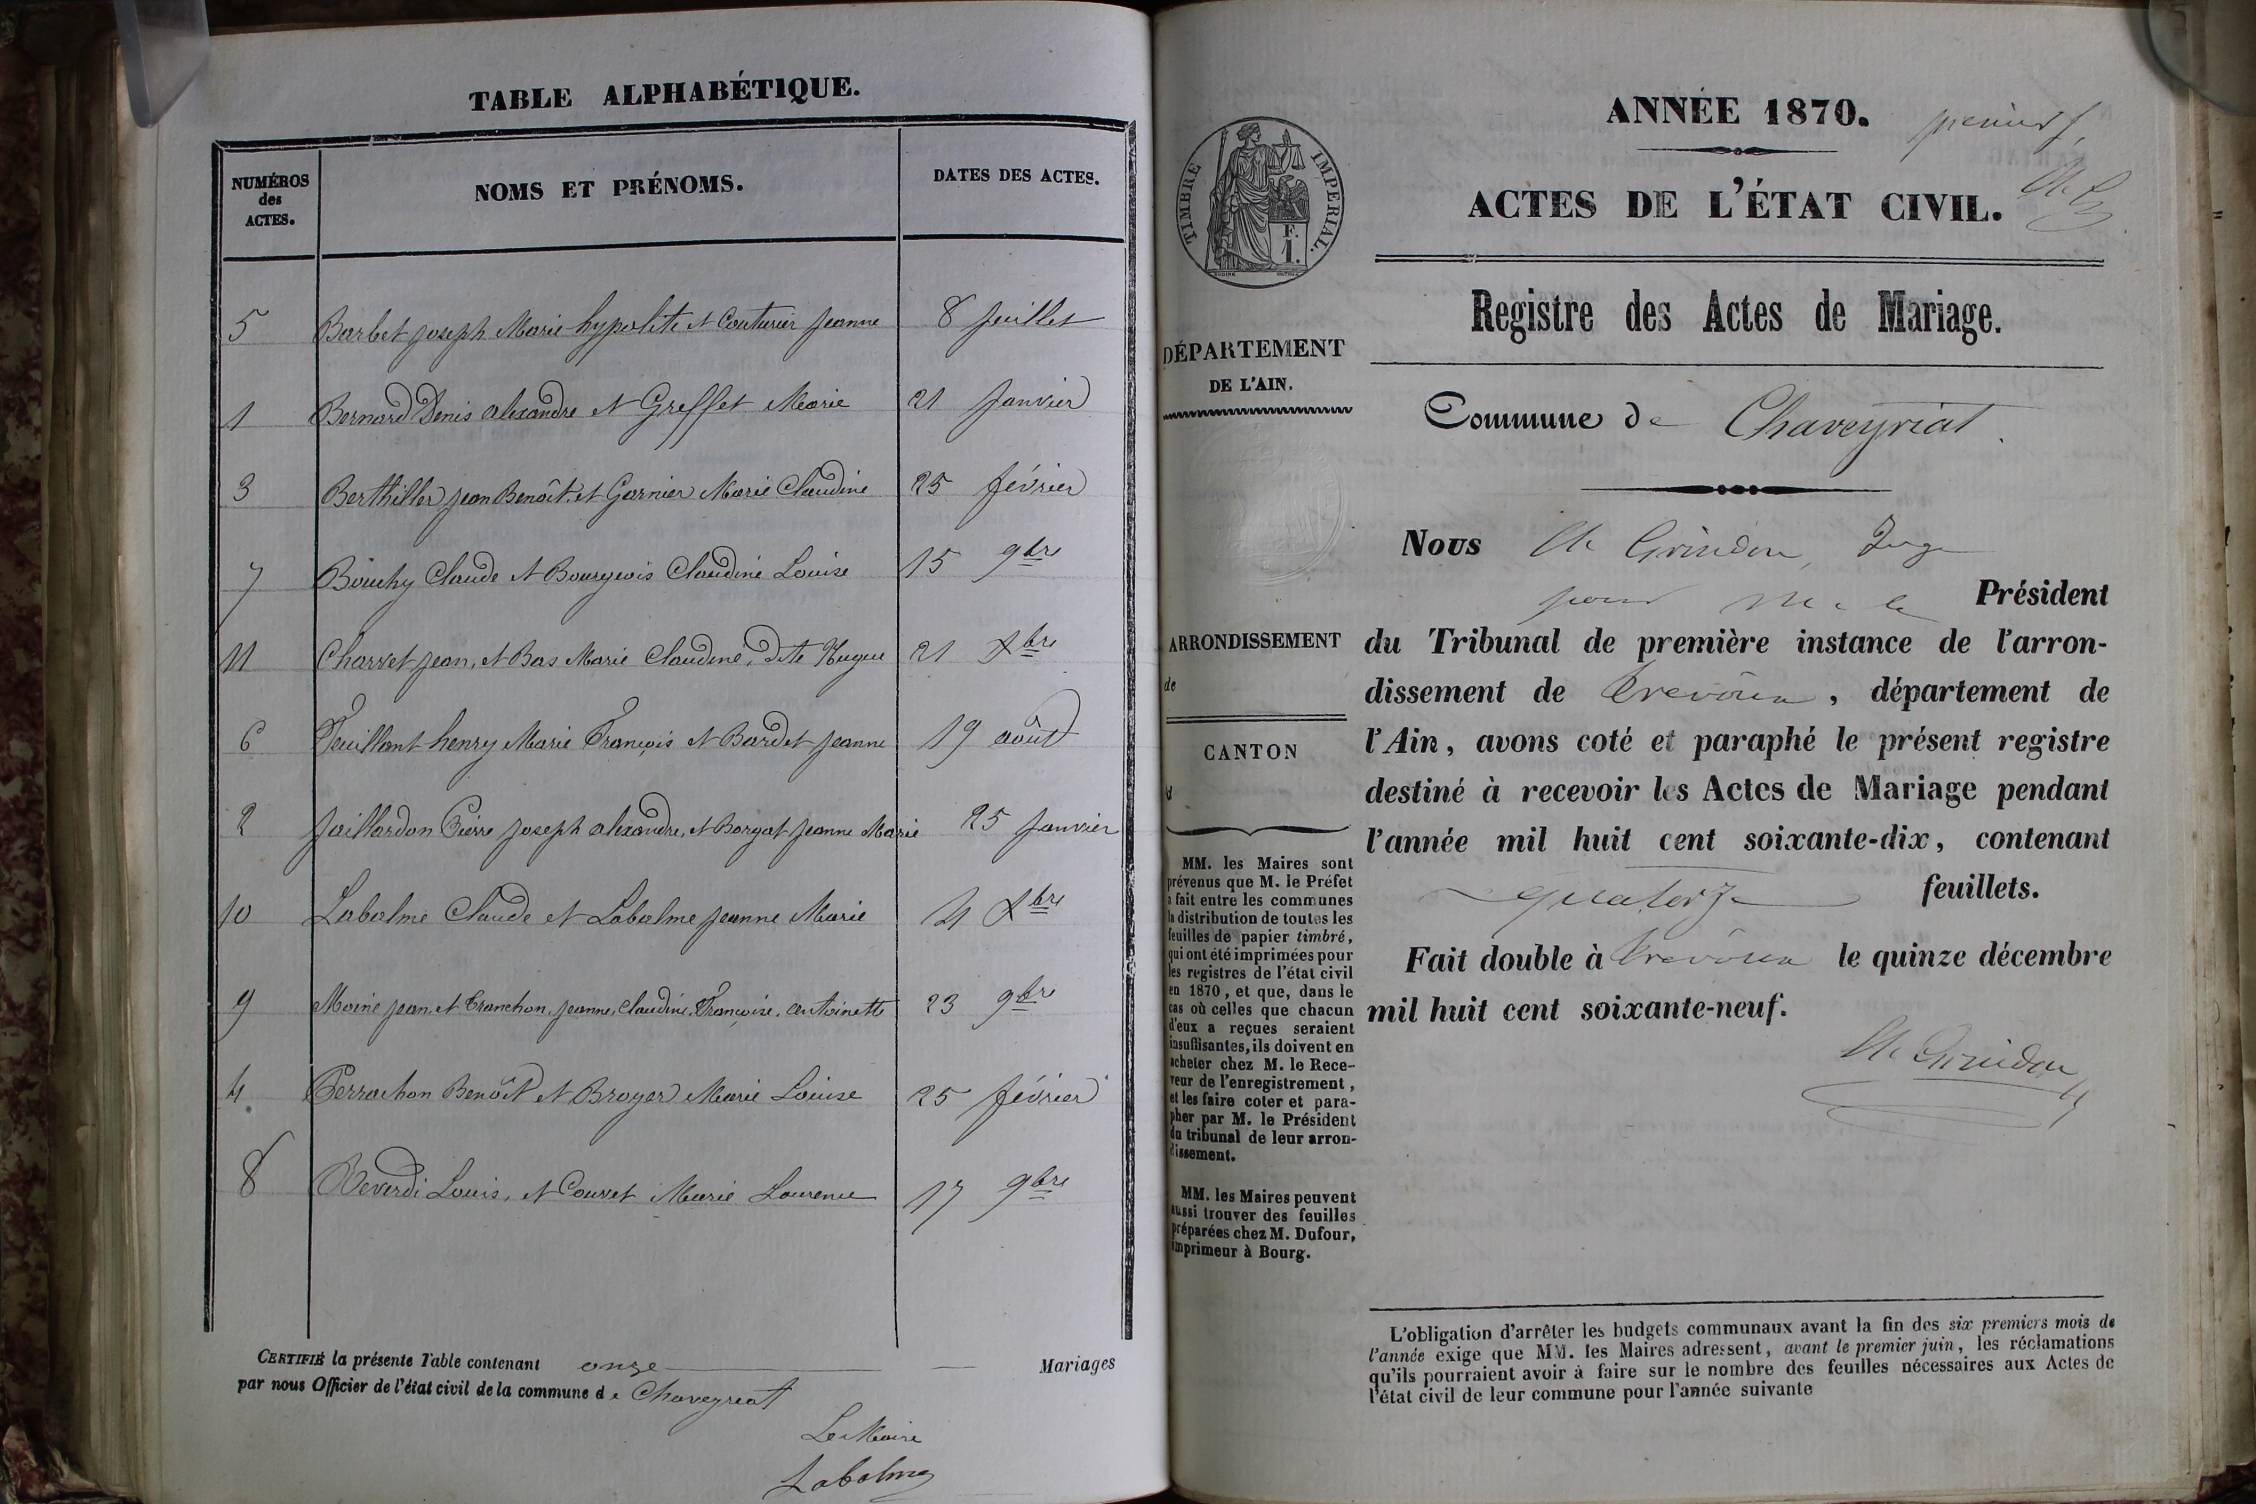 TABLE ALPHABÉTIQUE.
NUMÉROS des ACTES.
NOMS ET PRÉNOMS.
DATES DES ACTES.
5 Barbet joseph Marie hypolite et Couturier Jeanne 8 Juillet
1 Bernard Denis alexandre et Greffet Marie 21 Janvier
3 Berthiller jean Benoît et Garnier Marie Claudine 25 février
7 Bouchy Claude et Bourgeois Claudine Louise 15 9bre
11 Charvet jean, et Bas Marie Claudine, dite Hugue 21 Xbre
6 Feuillant henry Marie François et Bardet jeanne 19 août
2 Jaillardon Pierre joseph alexandre, et Borgat jeanne Marie 25 Janvier
10 Labalme Claude et Labalme jeanne Marie 21 Xbre
9 Moine jean, et Tranchon, jeanne, claudine, Françoise, antoinette 23 9bre
4 Perrachon Benoît et Broyer Marie Louise 25 février
8 Reverdi Louis, et Couvet Marie Laurence 17 9bre
CERTIFIÉ la présente Table contenant onze Mariages
par nous Officier de l'état civil de la commune de Chaveyriat
Le Maire
Labalme
ANNÉE 1870.
premier f.
TIMBRE IMPERIAL.
F.
1.
ACTES DE L'ÉTAT CIVIL.
Registre des Actes de Mariage.
DÉPARTEMENT
DE L'AIN.
Commune de Chaveyriat.
Nous Ch Grindon, Juge
pour M. le Président
ARRONDISSEMENT
de
du Tribunal de première instance de l'arron-
dissement de Trévoux, département de
l'Ain, avons coté et paraphé le présent registre
destiné à recevoir les Actes de Mariage pendant
l'année mil huit cent soixante-dix, contenant
quatorze feuillets.
Fait double à Trévoux le quinze décembre
mil huit cent soixante-neuf.
Ch Grindon
CANTON
d
MM. les Maires sont
prévenus que M. le Préfet
a fait entre les communes
la distribution de toutes les
feuilles de papier timbré,
qui ont été imprimées pour
les registres de l'état civil
en 1870, et que, dans le
cas où celles que chacun
d'eux a reçues seraient
insuffisantes, ils doivent en
acheter chez M. le Rece-
veur de l'enregistrement,
et les faire coter et para-
pher par M. le Président
du tribunal de leur arron-
dissement.
MM. les Maires peuvent
aussi trouver des feuilles
préparées chez M. Dufour,
imprimeur à Bourg.
L'obligation d'arrêter les budgets communaux avant la fin des six premiers mois de
l'année exige que MM. les Maires adressent, avant le premier juin, les réclamations
qu'ils pourraient avoir à faire sur le nombre des feuilles nécessaires aux Actes de
l'état civil de leur commune pour l'année suivante